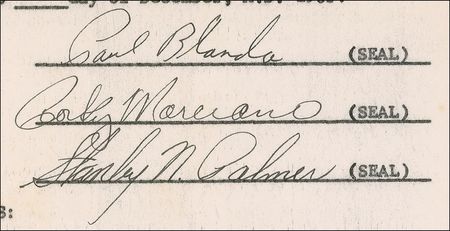 day of December, A.D. 196
Paul Blanda (SEAL)
Rocky Marciano (SEAL)
Stanley N. Palmer (SEAL)
S: